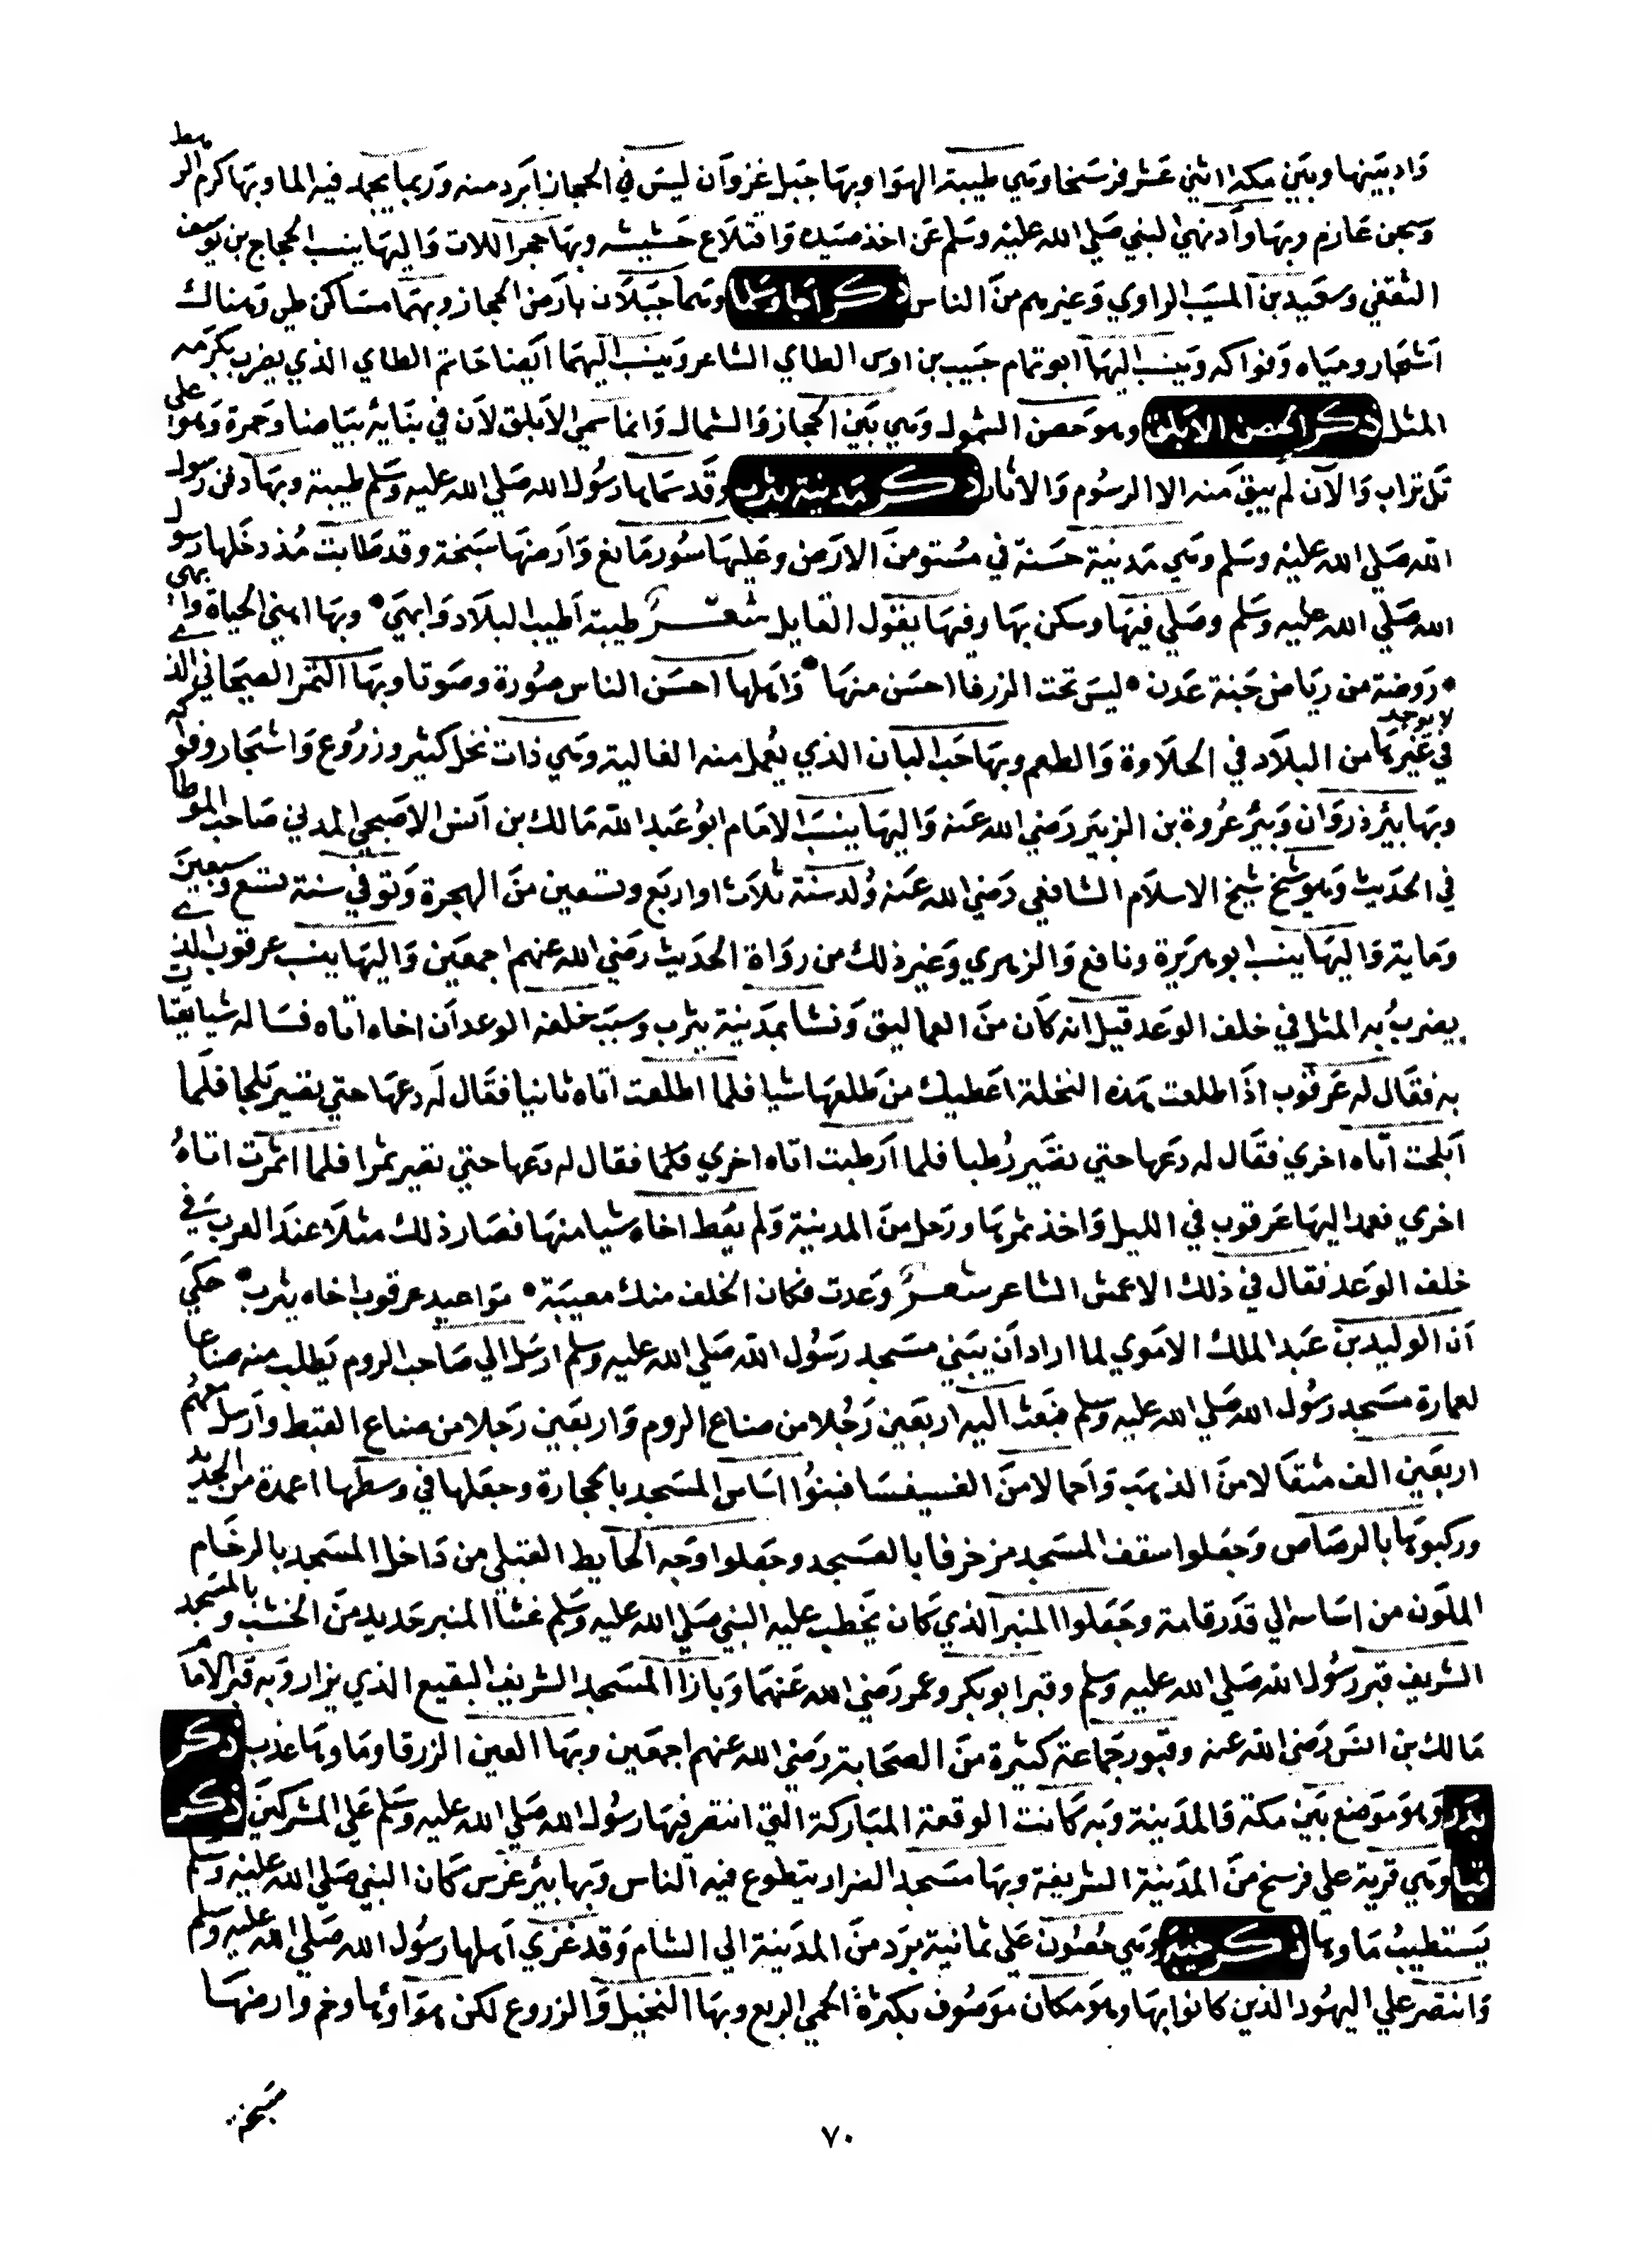 واد بينها وبين مكة اثني عشر فرسخا وهي طيبة الهوا وبها جبل غزوان ليس في الحجاز ابرد منه وربما يجمد فيه الما وبها كرم الرهط
وسجن عارم وبها واد نهى النبي صلي الله عليه وسلم عن اخذ صيده واقتلاع حشيشه وبها حجر اللات واليها ينسب الحجاج بن يوسف
الثقفي وسعيد بن المسيب الراوي وغيرهم من الناس ذكر اجا وسلما وهما جبلان بارض الحجاز وبهما مساكن طي وهناك
اشجار ومياه وفواكه وينسب اليهما ابو تمام حبيب بن اوس الطاي الشاعر وينسب اليهما ايضا حاتم الطاي الذي يضرب بكرمه
المثل ذكر الحصن الابلق وهو حصن السمول وهي بين الحجاز والشمال وانما سمي الابلق لان في بنايه بياضا وحمرة وهو على
تل تراب والان لم يبق منه الا الرسوم والاثار ذكر مدينة يثرب وقد سماها رسول الله صلي الله عليه وسلم طيبة وبها دفن رسول
الله صلي الله عليه وسلم وهي مدينة حسنة في مستو من الارض وعليها سور مانع وارضها سبخة وقد طابت مذ دخلها رسول
الله صلي الله عليه وسلم وصلي فيها وسكن بها وفيها يقول القايل شعر طيبة اطيب البلاد وابهي • وبها اهني الحياة وابهى
• روضة من رياض جنة عدن • ليس تحت الزرقا احسن منها • واهلها احسن الناس صورة وصوتا وبها التمر الصيحاني الذي لا يوجد
في غيرها من البلاد في الحلاوة والطعم وبها حب البان الذي يعمل منه الغالية وهي ذات نخل كثير وزروع واشجار وفواكه
وبها بير ذروان وبير عروة بن الزبير رضي الله عنه واليها ينسب الامام ابو عبد الله مالك بن انس الاصبحي المدني صاحب الموطا
في الحديث وهو شيخ شيخ الاسلام الشافعي رضي الله عنه ولد سنة ثلاث او اربع وتسعين من الهجرة وتوفي سنة تسع وسبعين
وماية واليها ينسب ابو هريرة ونافع والزهري وغير ذلك من رواة الحديث رضي الله عنهم اجمعين واليها ينسب عرقوب الذي
يضرب به المثل في خلف الوعد قيل انه كان من العماليق ونشا بمدينة يثرب وسبب خلفه الوعد ان اخاه اتاه فساله شيا يقتات
به فقال له عرقوب اذا طلعت هذه النخلة اعطيك من طلعها شيا فلما اطلعت اتاه ثانيا فقال له دعها حتي تصير بلحا فلما
ابلحت اتاه اخري فقال له دعها حتي تصير رطبا فلما ارطبت اتاه اخري فقال له دعها حتي تصير تمرا فلما اتمرت اتاه
اخري فعمد اليها عرقوب في الليل واخذ تمرها ورحل من المدينة ولم يعط اخاه شيا منها فصار ذلك مثلا عند العرب في
خلف الوعد فقال في ذلك الاعمش الشاعر شعر وعدت فكان الخلف منك معيبة • مواعيد عرقوب اخاه يثرب • حكي
ان الوليد بن عبد الملك الاموي لما اراد ان يبني مسجد رسول الله صلي الله عليه وسلم ارسل الي صاحب الروم يطلب منه صناعا
لعمارة مسجد رسول الله صلي الله عليه وسلم فبعث اليه اربعين رجلا من صناع الروم واربعين رجلا من صناع القبط وارسل معهم
اربعين الف مثقالا من الذهب واحمالا من الفسيفسا فبنوا اساس المسجد بالحجارة وجعلها في وسطها اعمدة من الحديد
وركبوها بالرصاص وجعلوا سقف المسجد مزخرفا بالعسجد وجعلوا وجه الحايط القبلي من داخل المسجد بالرخام
الملون من اساسه الي قدر قامة وجعلوا المنبر الذي كان يخطب عليه النبي صلي الله عليه وسلم غشا المنبر حديد من الخشب وبالمسجد
الشريف قبر رسول الله صلي الله عليه وسلم وقبر ابو بكر وعمر رضي الله عنهما وبازا المسجد الشريف البقيع الذي يزار وبه قبر الامام
مالك بن انس رضي الله عنه وقبور جماعة كثيرة من الصحابة رضي الله عنهم اجمعين وبها العين الزرقا وماوها عذب ذكر
بدر وهو موضع بين مكة فالمدينة وبه كانت الوقعة المباركة التي انتصر فيها رسول الله صلي الله عليه وسلم علي المشركين ذكر
قبا وهي قرية علي فرسخ من المدينة الشريفة وبها مسجد الضرار يتطوع فيه الناس وبها بير غرس كان النبي صلي الله عليه وسلم
يستطيب ماوها ذكر خيبر وهي حصون علي ثمانية برد من المدينة الي الشام وقد غزي اهلها رسول الله صلي الله عليه وسلم
وانتصر علي اليهود الذين كانوا بها وهو مكان موصوف بكثرة الحمي الربع وبها النخيل والزروع لكن هواوها وخم وارضها
سبخة
٧٠